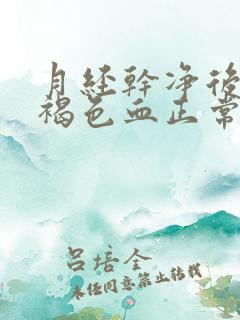 月经幹净後
褐色血正常
吕培全
未经同意禁止转载